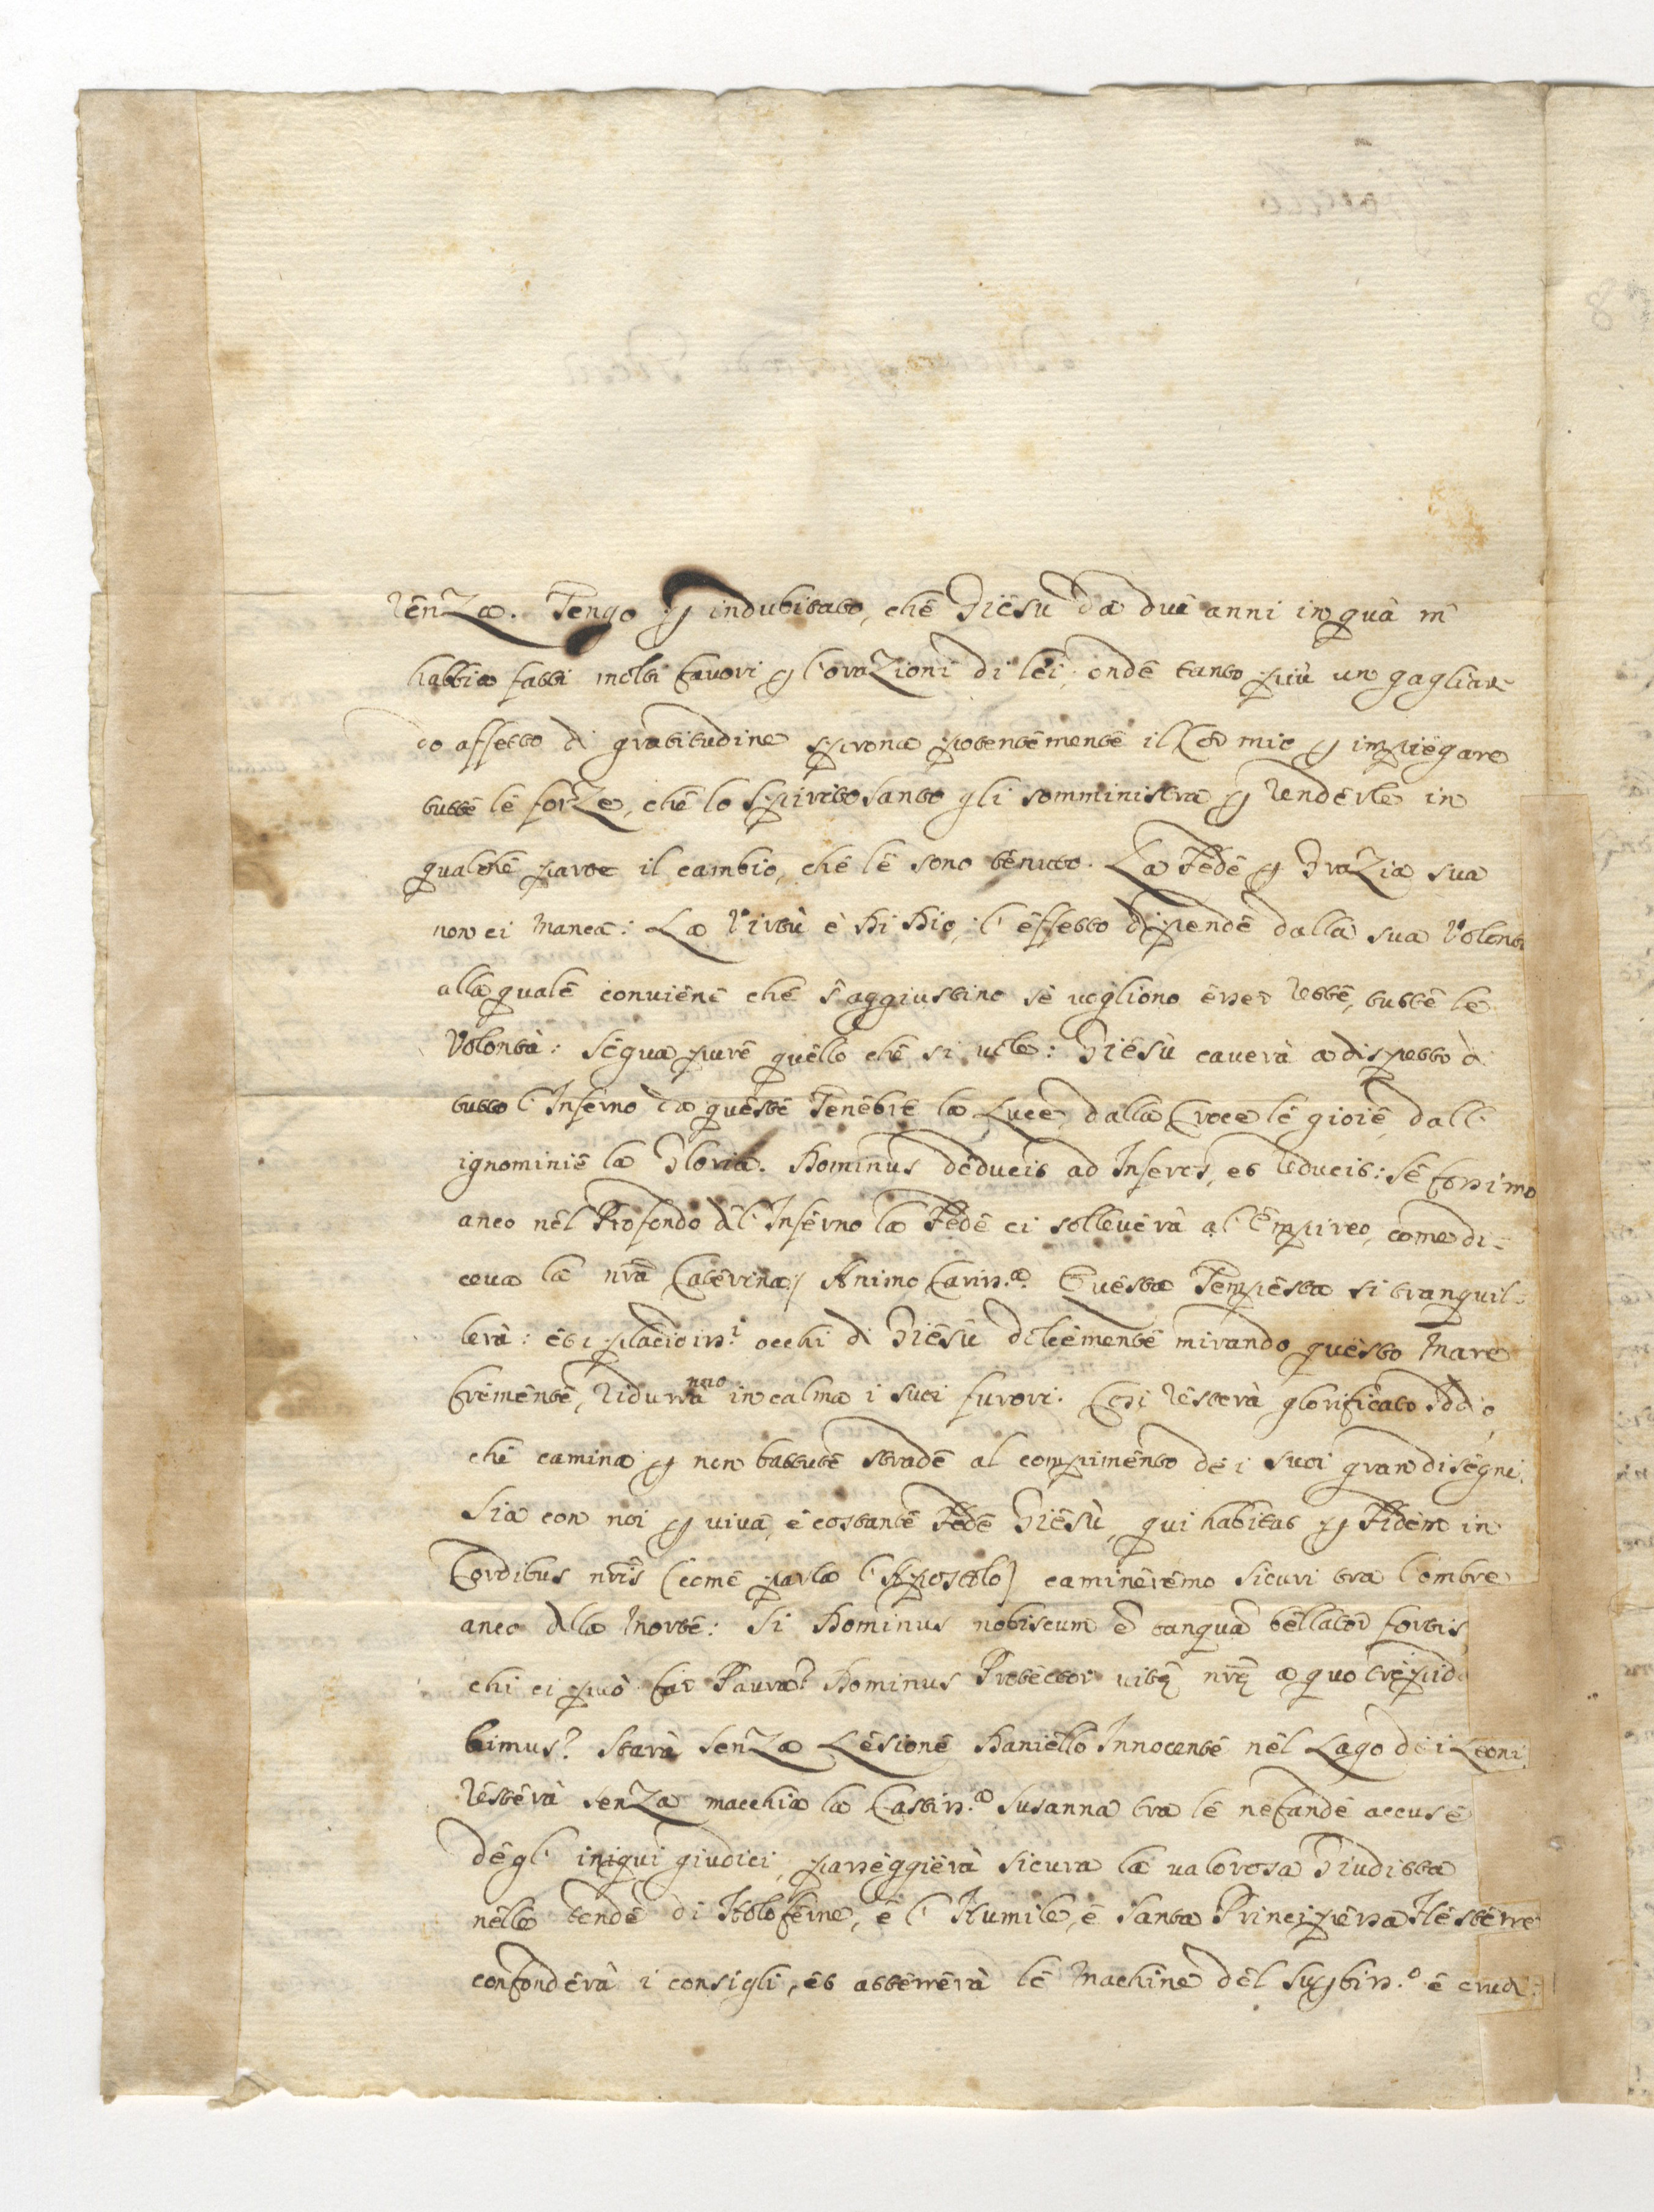 renza. Tengo p indubitato, che Giesù da due anni in quà m'
habbia fatti molti favori p l'orazioni di lei; onde tanto più un gagliar-
do affetto di gratitudine sprona potentemente il Cor mio p impiegare
tutte le forze, che lo Spirito Santo gli somministra p renderle in
qualche parte il cambio, che le sono tenuto. La Fede p Grazia sua
non ci manca: La Virtù è di Dio; l'effetto dipende dalla sua Volont
alla quale conviene che s'aggiustino se vogliono esser rette, tutte le
Volontà: segua pure quello che si vole: Giesù caverà a dispetto d
tutto l'Inferno da queste Tenebre la Luce, dalla Croce le gioie, dall'
ignominie la Gloria. Dominus deducit ad Inferos, et reducit: se fossimo
anco nel Profondo del'Inferno la Fede ci solleverà al'Empireo, come di-
ceva la nrã Caterina/ Animo Cariss.ª Questa Tempesta si tranquil-
lerà: et i placidiss.i occhi di Giesù dolcemente mirando questo Mare
fremente, ridurrànno in calma i suoi furori. Così resterà glorificato Iddio,
che camina p non battute strade al compimento dei suoi gran disegni.
Sia con noi p viva, e costante Fede Giesù, qui habitat p Fidem in
Cordibus nrĩs (come parla l'Apostolo) camineremo sicuri tra l'ombre
anco dlla Morte: Si Dominus nobiscum ẽ tanquã bellator fortis
chi ci può far Paura? Dominus Protector vitę nrę a quo trepida
bimus? Starà senza Lesione Daniello Innocente nel Lago dei Leoni
resterà senza macchia la Castiss.ª Susanna tra le nefande accuse
degl' iniqui giudici, passeggierà sicura la valorosa Giuditta
nelle tende di Holoferne, e l'Humile, e Santa Principessa Hesterre
confonderà i consigli, et atterrerà le Machine del Supbiss.º e crud: